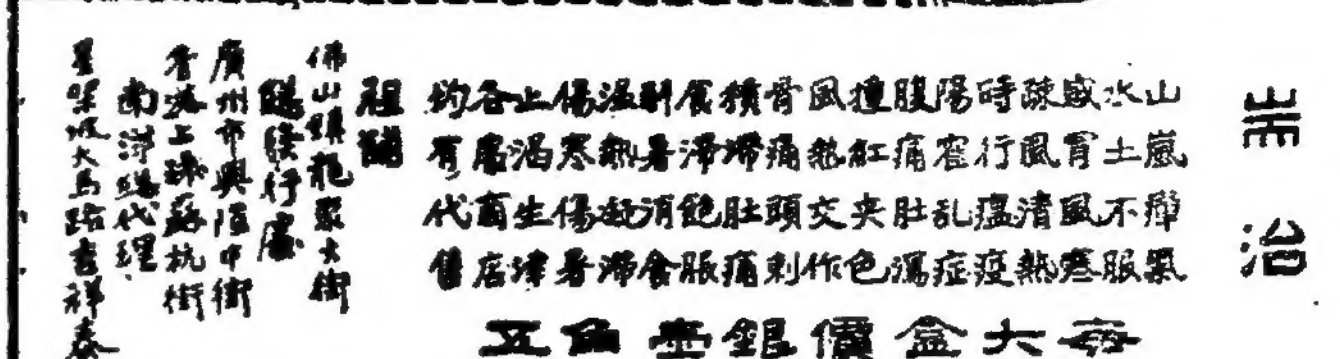 耑治
山嵐瘴氣
水土不服
感冒風寒
疎風清熱
時行瘟疫
陽霍乱症
腹痛肚瀉
撞紅夾色
風熱交作
骨痛頭刺
積滯肚痛
食滯飽脹
解暑消食
濕熱凝滯
傷寒傷暑
止渴生津
各屬商店
均有代售
每大盒價銀壹角五
祖舖
佛山鎮龍聚大街
行處
廣州市興隆中街
香港上環蘇杭街
南洋總代理
星㗎坡大馬路吉祥泰